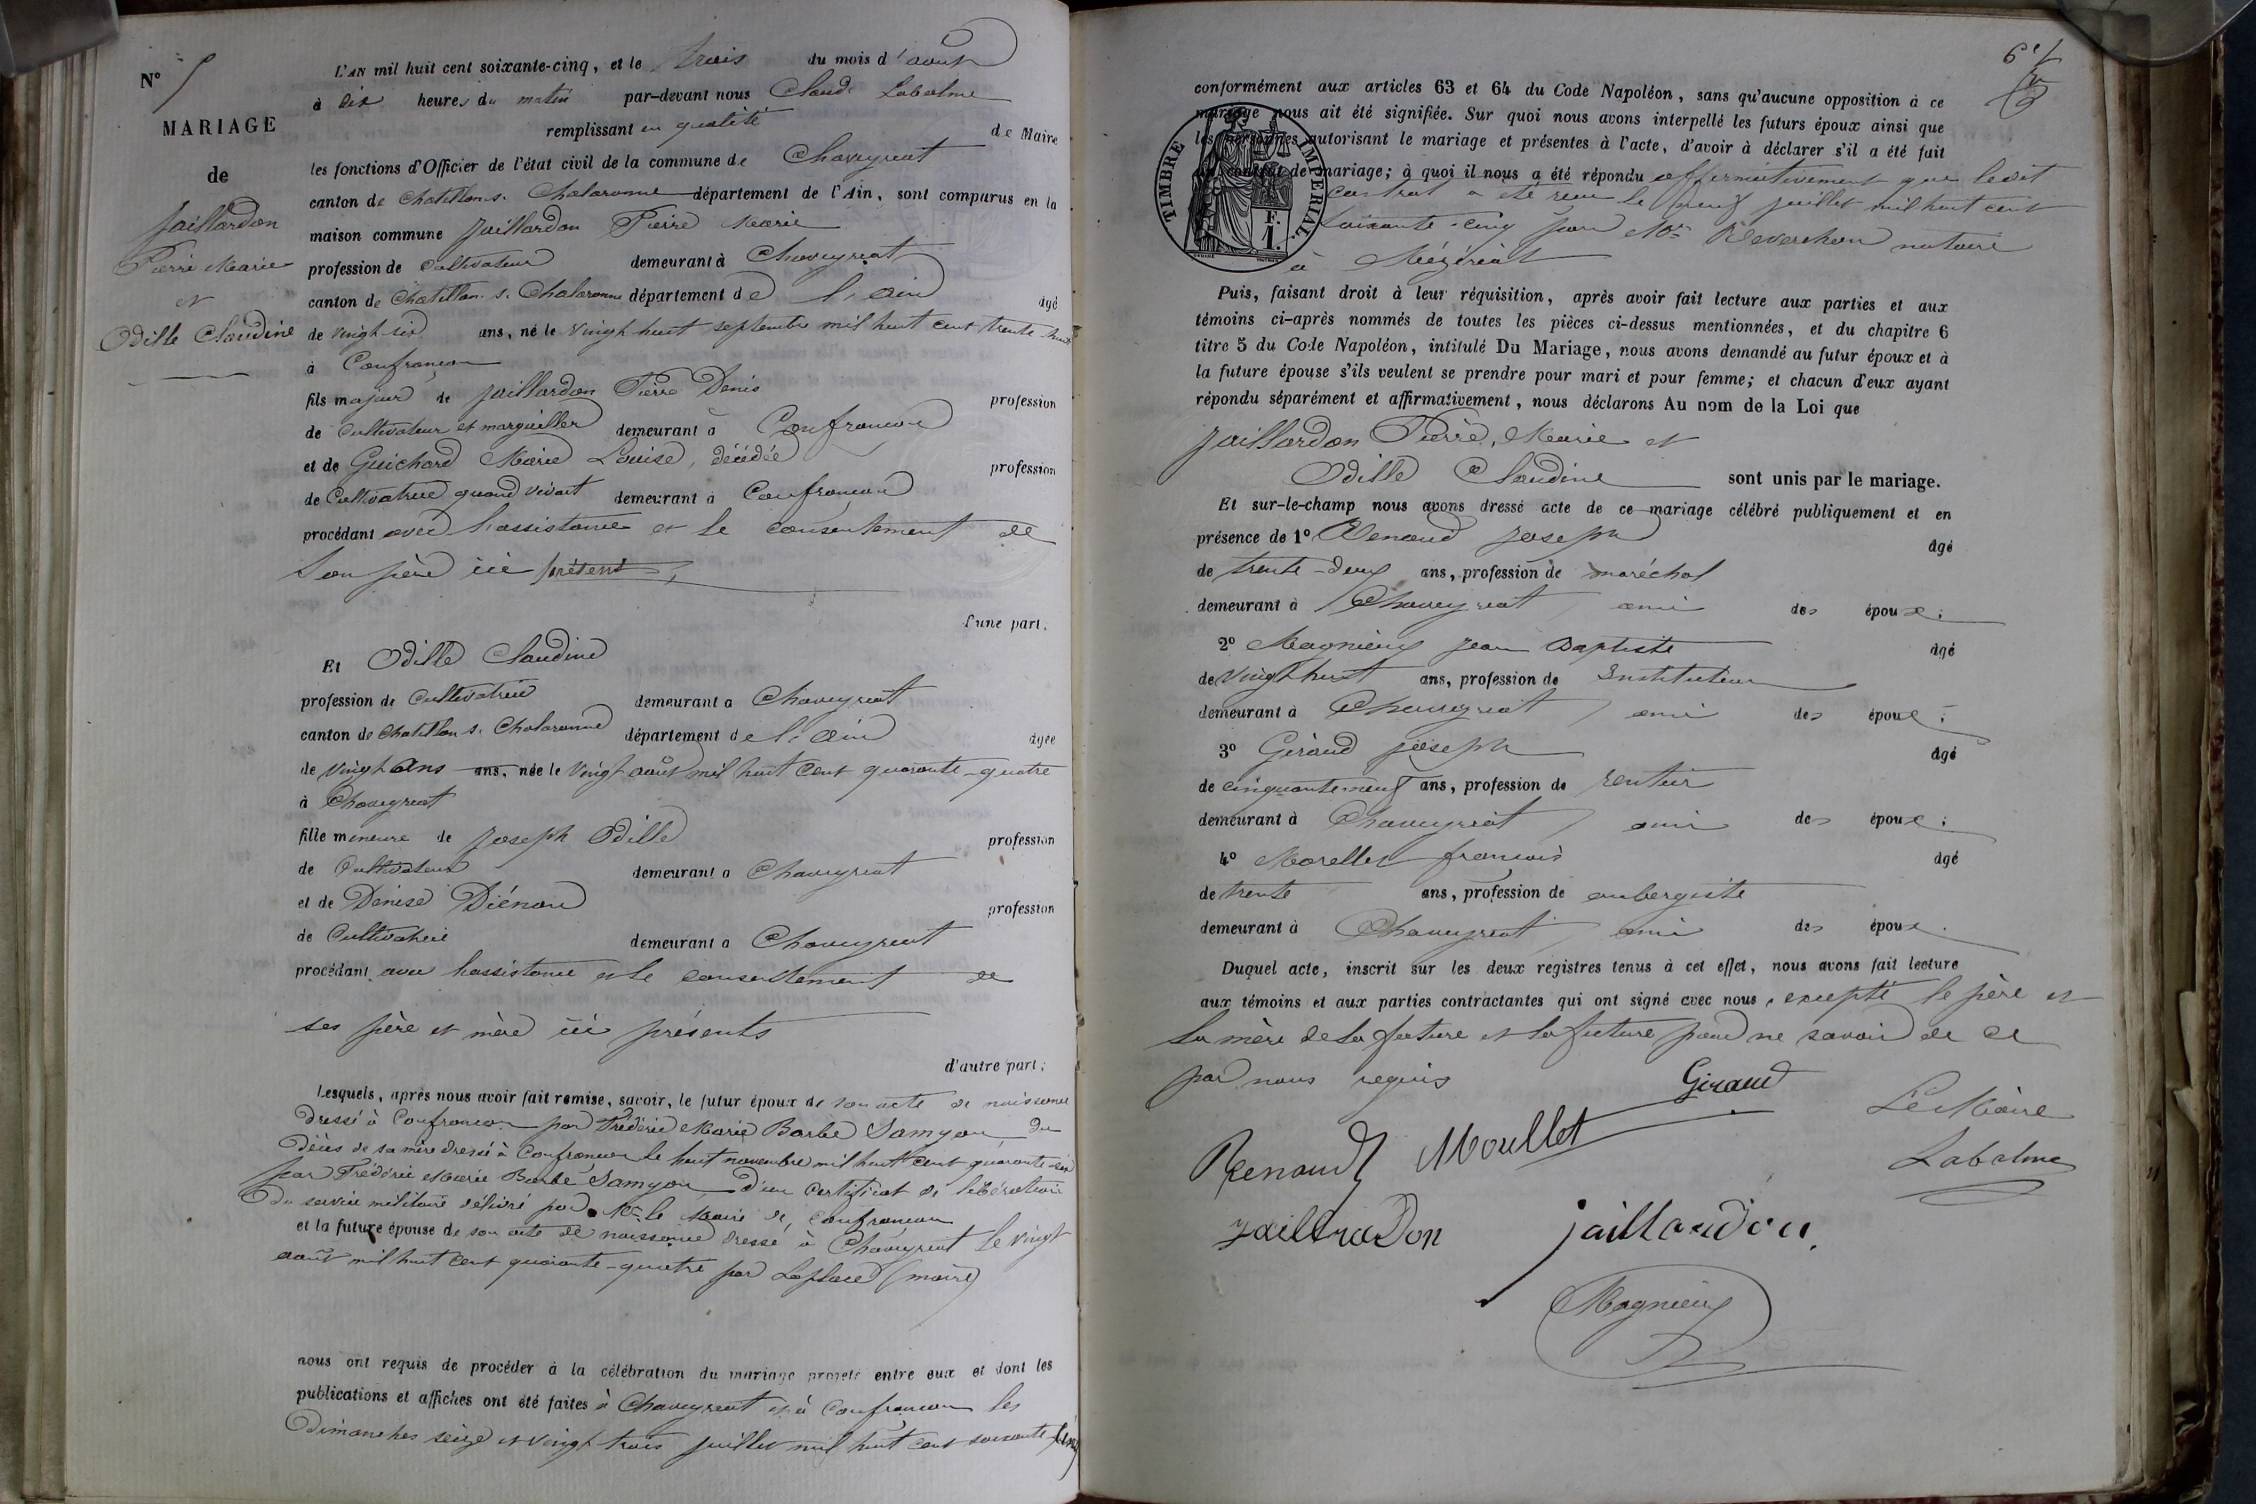 N° 5
MARIAGE
de
Jaillardon
Pierre Marie
et
Odille Claudine
L'AN mil huit cent soixante-cinq, et le trois du mois d'août
à dix heures du matin par-devant nous Claude Labalme
remplissant en qualité de Maire
les fonctions d'Officier de l'état civil de la commune de Chaveyriat
canton de Chatillon s. Chalaronne département de l'Ain, sont comparus en la
maison commune Jaillardon Pierre Marie
profession de cultivateur demeurant à Chaveyriat
canton de Chatillon s. Chalaronne département de l'ain âgé
de vingt six ans, né le vingt huit septembre mil huit cent trente huit
à Confrançon
fils majeur de Jaillardon Pierre Denis profession
de cultivateur et marguiller demeurant à Confrançon
et de Guichard Marie Louise, décédée profession
de Cultivatrice quand vivait demeurant à Confrançon
procédant avec l'assistance et le consentement de
Son père ici présent ;
d'une part.
Et Odille Claudine
profession de cultivatrice demeurant à Chaveyriat
canton de Chatillon s. Chalaronne département de l'ain âgée
de vingt ans ans, née le vingt août mil huit cent quarante-quatre
à Chaveyriat
fille mineure de Joseph Odille profession
de Cultivateur demeurant à Chaveyriat
et de Denise Diénon profession
de Cultivatrice demeurant à Chaveyriat
procédant avec l'assistance et le consentement de
ses père et mère ici présents
d'autre part;
Lesquels, après nous avoir fait remise, savoir, le futur époux de son acte de naissance
dressé à Confrançon par Frédéric Marie Barbe Samyon, du
Décès de sa mère dressé à Confrançon le huit novembre mil huit cent quarante-six
par Frédéric Marie Barbe Samyon, d'un certificat de libération
du service militaire délivré par Mr le Maire de Confrançon
et la future épouse de son acte de naissance dressé à Chaveyriat le vingt
août mil huit cent quarante-quatre par Laplace (maire)
nous ont requis de procéder à la célébration du mariage projeté entre eux et dont les
publications et affiches ont été faites à Chaveyriat et à Confrançon les
Dimanches seize et vingt trois juillet mil huit cent soixante cinq
conformément aux articles 63 et 64 du Code Napoléon, sans qu'aucune opposition à ce
mariage nous ait été signifiée. Sur quoi nous avons interpellé les futurs époux ainsi que
les personnes autorisant le mariage et présentes à l'acte, d'avoir à déclarer s'il a été fait
un contrat de mariage; à quoi il nous a été répondu affirmativement que ledit
contrat a été reçu le neuf juillet mil huit cent
soixante-cinq par Me Reverchon notaire
à Mézériat
TIMBRE IMPERIAL.
F.
1.
Puis, faisant droit à leur réquisition, après avoir fait lecture aux parties et aux
témoins ci-après nommés de toutes les pièces ci-dessus mentionnées, et du chapitre 6
titre 5 du Code Napoléon, intitulé Du Mariage, nous avons demandé au futur époux et à
la future épouse s'ils veulent se prendre pour mari et pour femme; et chacun d'eux ayant
répondu séparément et affirmativement, nous déclarons Au nom de la Loi que
Jaillardon Pierre, Marie et
Odille Claudine sont unis par le mariage.
Et sur-le-champ nous avons dressé acte de ce mariage célébré publiquement et en
présence de 1° Renaud Joseph âgé
de trente-deux ans, profession de maréchal
demeurant à Chaveyriat ami des époux.
2° Magnieux Jean Baptiste âgé
de vingt huit ans, profession de Instituteur
demeurant à Chaveyriat ami des époux.
3° Giraud joseph âgé
de cinquante neuf ans, profession de rentier
demeurant à Chaveyriat ami des époux.
4° Morellet françois âgé
de trente ans, profession de aubergiste
demeurant à Chaveyriat ami des époux.
Duquel acte, inscrit sur les deux registres tenus à cet effet, nous avons fait lecture
aux témoins et aux parties contractantes qui ont signé avec nous, excepté le père et
la mère de la future et la future pour ne savoir de ce
par nous requis
Giraud
Le Maire
Renaud Moullet
Labalme
Jaillradon jaillardon.
Magnieux